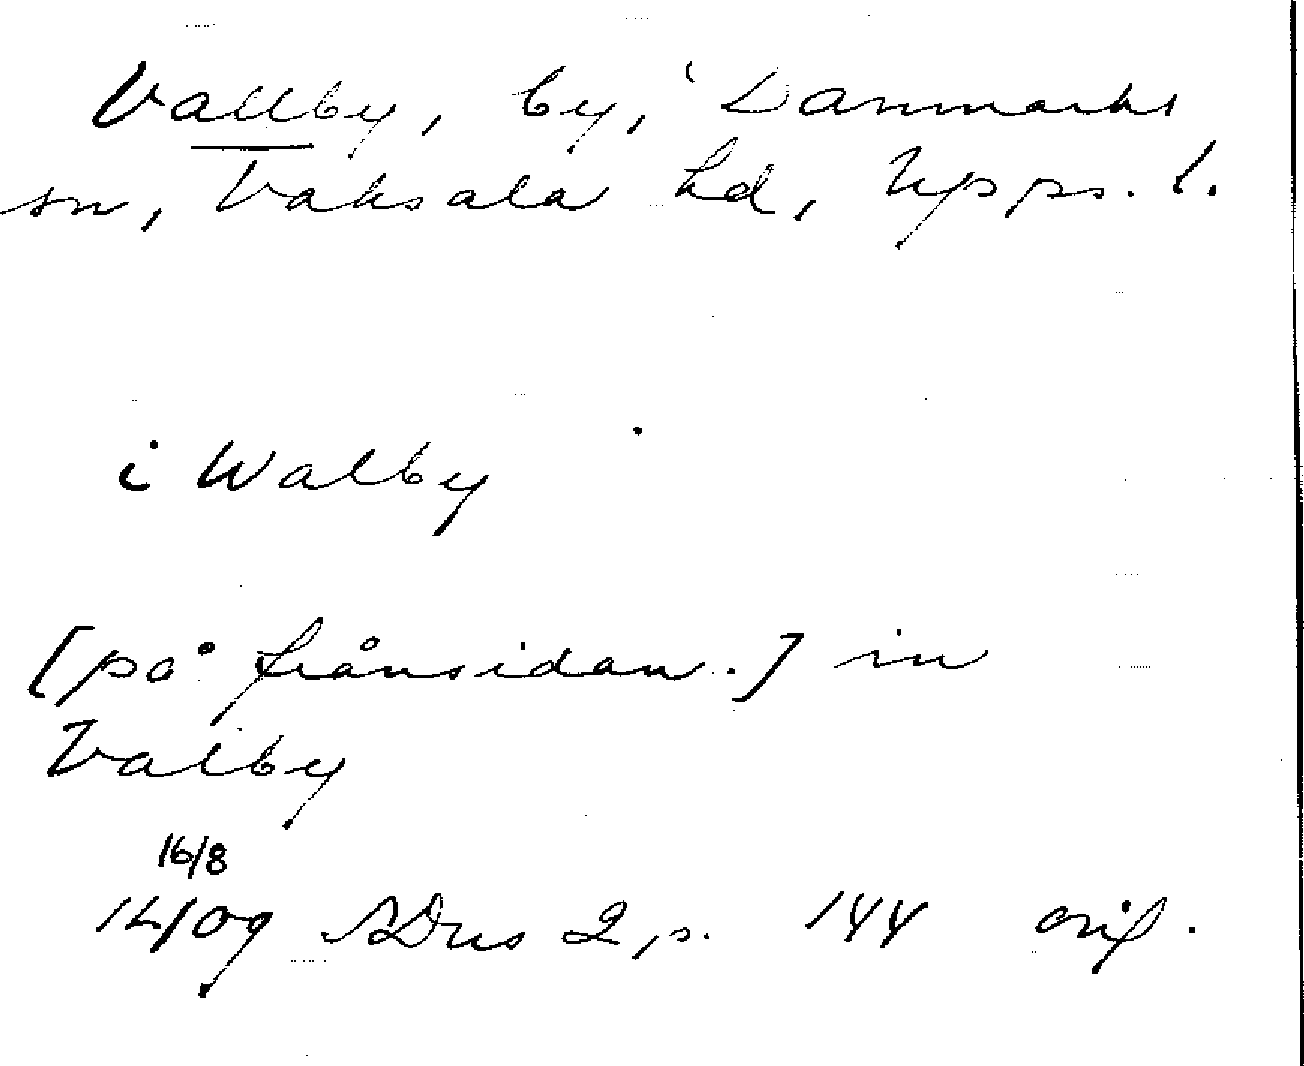 Vallby, by, i Danmarks
sn, Vaksala hd, Upps. l.
i Walby
[på frånsidan.] in
Valby
16/8
1409 SDns 2 p. 144 orig.